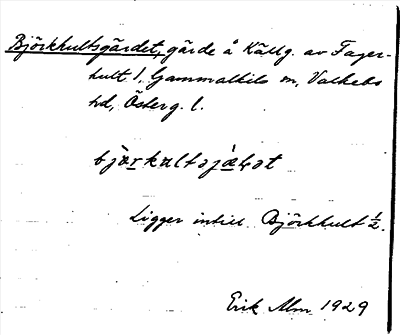 Björkhultsgärdet, gärde å Källg. av Fager-
hult 1, Gammalkils sn, Valkebo
hd, Österg. l.
Ligger intill Björkhult ½.
Erik Alm 1929